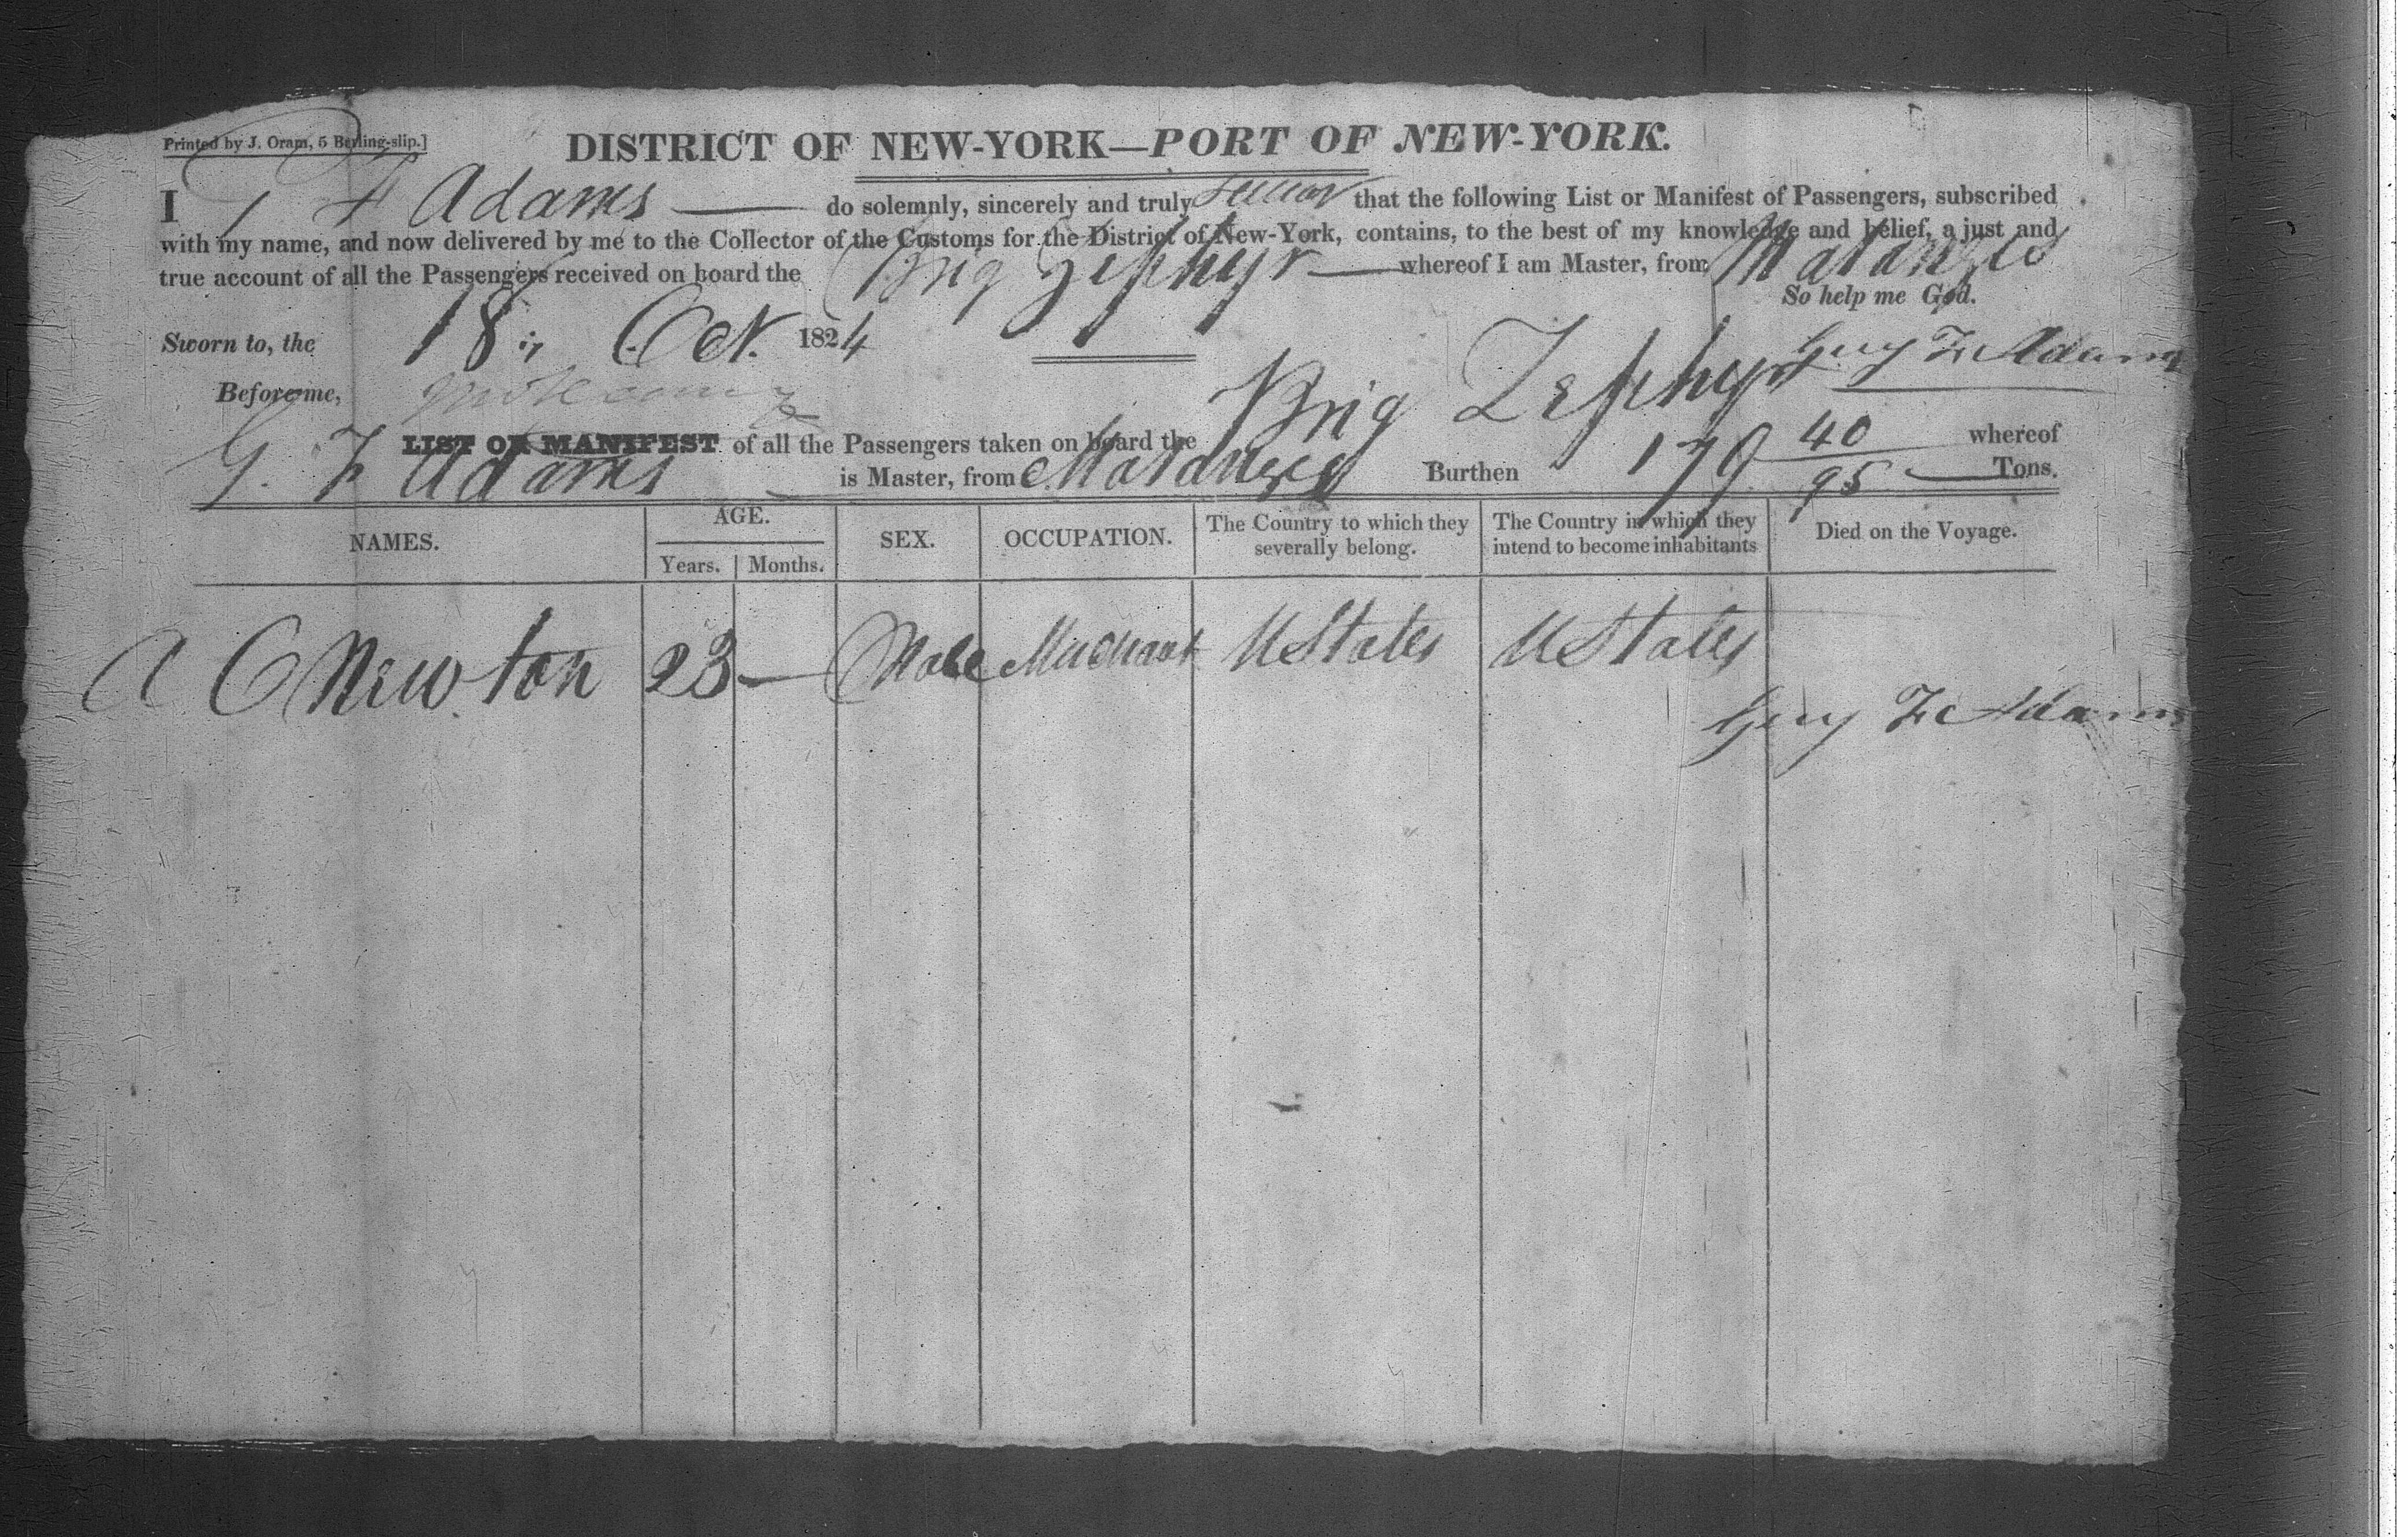 Printed by J. Oram, 5 Burling-slip.]
DISTRICT OF NEW-YORK—PORT OF NEW-YORK.
I G F Adams — do solemnly, sincerely and truly swear that the following List or Manifest of Passengers, subscribed
with my name, and now delivered by me to the Collector of the Customs for the District of New-York, contains, to the best of my knowledge and belief, a just and
true account of all the Passengers received on board the Brig Zephyr — whereof I am Master, from Matanzes
So help me God.
Sworn to, the 18 Oct. 1824
Guy F. Adams
Before me,
LIST OR MANIFEST of all the Passengers taken on board the Brig Zephyr whereof
G. F Adams is Master, from Matanzes Burthen 179 40/95 — Tons.
NAMES. AGE. SEX. OCCUPATION. The Country to which they severally belong. The Country in which they intend to become inhabitants Died on the Voyage.
Years. Months.
A C Newton 23 — Male Merchant U States U States
Guy F. Adams